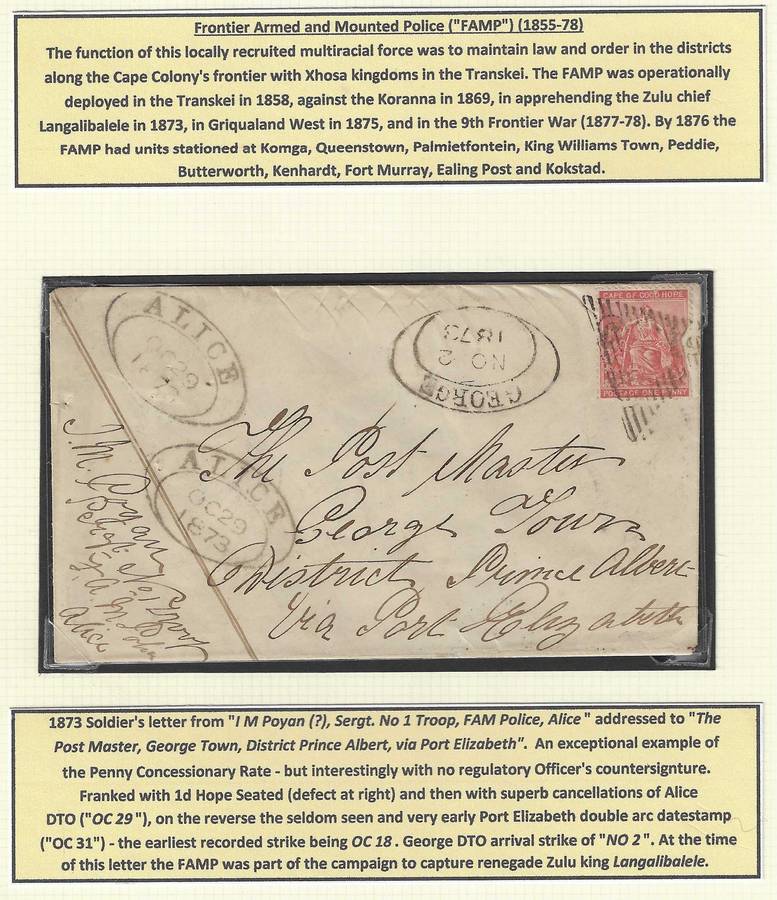 Frontier Armed and Mounted Police ("FAMP") (1855-78)
The function of this locally recruited multiracial force was to maintain law and order in the districts
along the Cape Colony's frontier with Xhosa kingdoms in the Transkei. The FAMP was operationally
deployed in the Transkei in 1858, against the Koranna in 1869, in apprehending the Zulu chief
Langalibalele in 1873, in Griqualand West in 1875, and in the 9th Frontier War (1877-78). By 1876 the
FAMP had units stationed at Komga, Queenstown, Palmietfontein, King Williams Town, Peddie,
Butterworth, Kenhardt, Fort Murray, Ealing Post and Kokstad.
ALICE
OC 29
1873
GEORGE
NO 2
1873
CAPE OF GOOD HOPE
POSTAGE ONE PENNY
ALICE
OC 29
1873
The Post Master
George Town
District Prince Albert
Via Port Elizabeth
Sergt No 1 Troop
Alice
1873 Soldier's letter from "I M Poyan (?), Sergt. No 1 Troop, FAM Police, Alice" addressed to "The
Post Master, George Town, District Prince Albert, via Port Elizabeth". An exceptional example of
the Penny Concessionary Rate - but interestingly with no regulatory Officer's countersignture.
Franked with 1d Hope Seated (defect at right) and then with superb cancellations of Alice
DTO ("OC 29"), on the reverse the seldom seen and very early Port Elizabeth double arc datestamp
("OC 31") - the earliest recorded strike being OC 18. George DTO arrival strike of "NO 2". At the time
of this letter the FAMP was part of the campaign to capture renegade Zulu king Langalibalele.